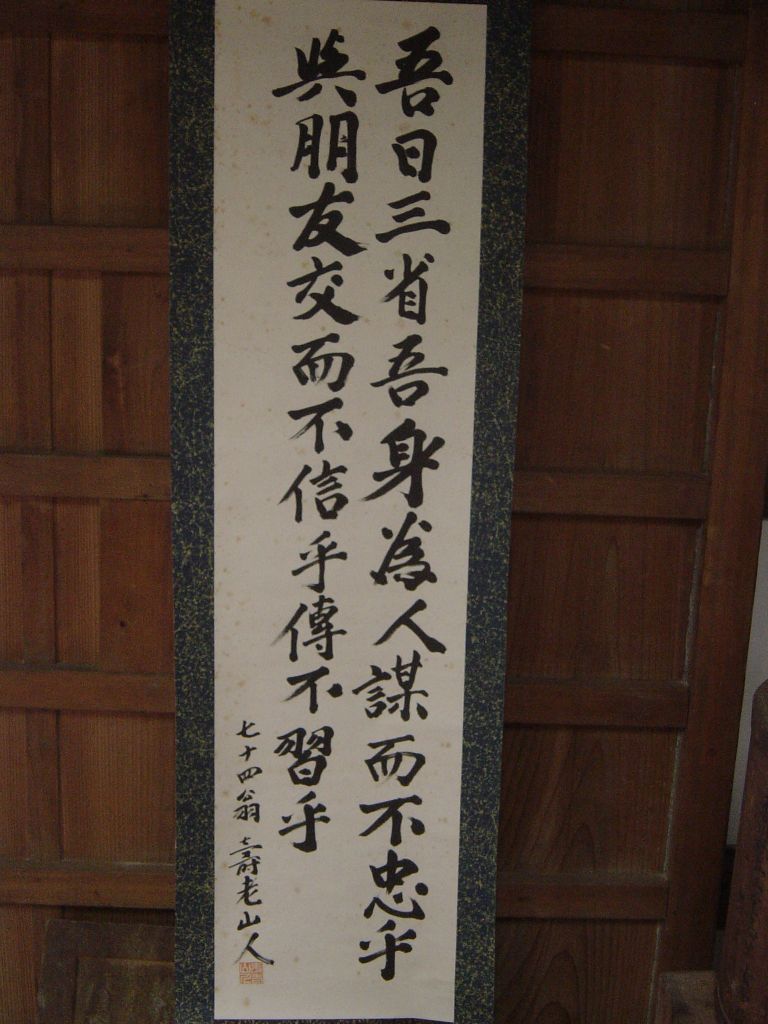 吾日三省吾身為人謀而不忠乎
與朋友交而不信乎傳不習乎
七十四翁 壽老山人